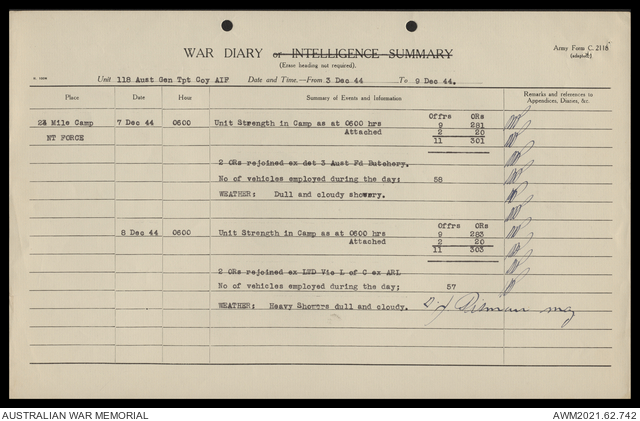 WAR DIARY or INTELLIGENCE SUMMARY
(Erase heading not required).
Army Form C. 2118
(adapted.)
Unit 118 Aust Gen Tpt Coy AIF Date and Time.—From 3 Dec 44 To 9 Dec 44.
Place Date Hour Summary of Events and Information Remarks and references to Appendices, Diaries, &c.
Offrs ORs
23 Mile Camp 7 Dec 44 0600 Unit Strength in Camp as at 0600 hrs 9 281
Attached 2 20
NT FORCE 11 301
2 ORs rejoined ex det 3 Aust Fd Butchery.
No of vehicles employed during the day; 58
WEATHER; Dull and cloudy showery.
Offrs ORs
8 Dec 44 0600 Unit Strength in Camp as at 0600 hrs 9 283
Attached 2 20
11 303
2 ORs rejoined ex LTD Vic L of C ex ARL
No of vehicles employed during the day; 57
WEATHER; Heavy Showers dull and cloudy.
AUSTRALIAN WAR MEMORIAL AWM2021.62.742